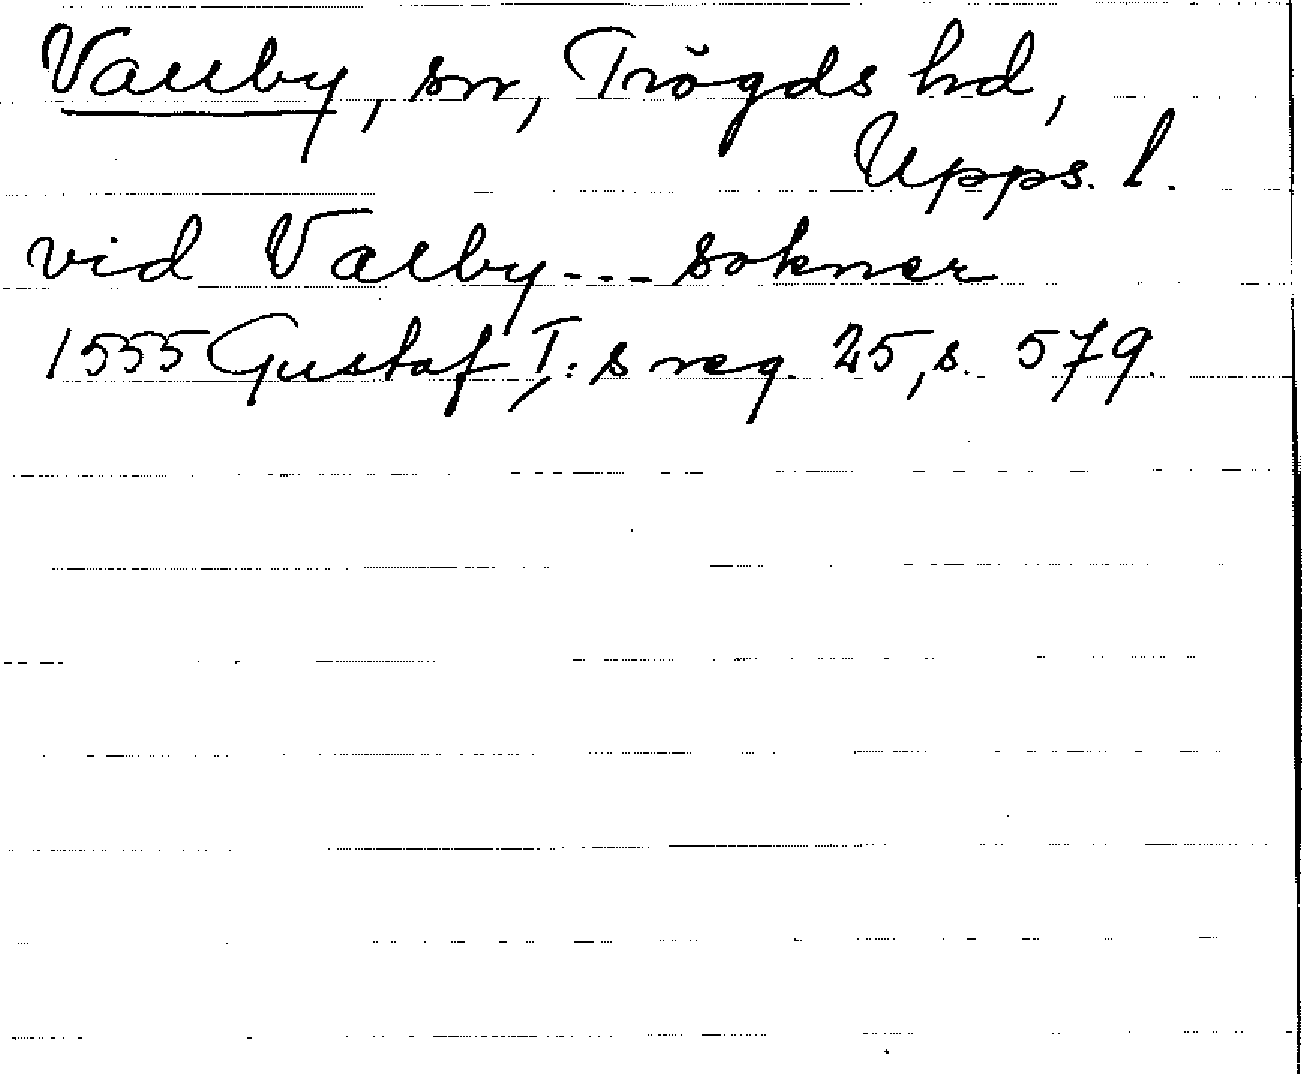 Vallby, sn, Trögds hd,
Upps. l.
vid Valby --- sokner
1555 Gustaf I:s reg. 25, s. 579.